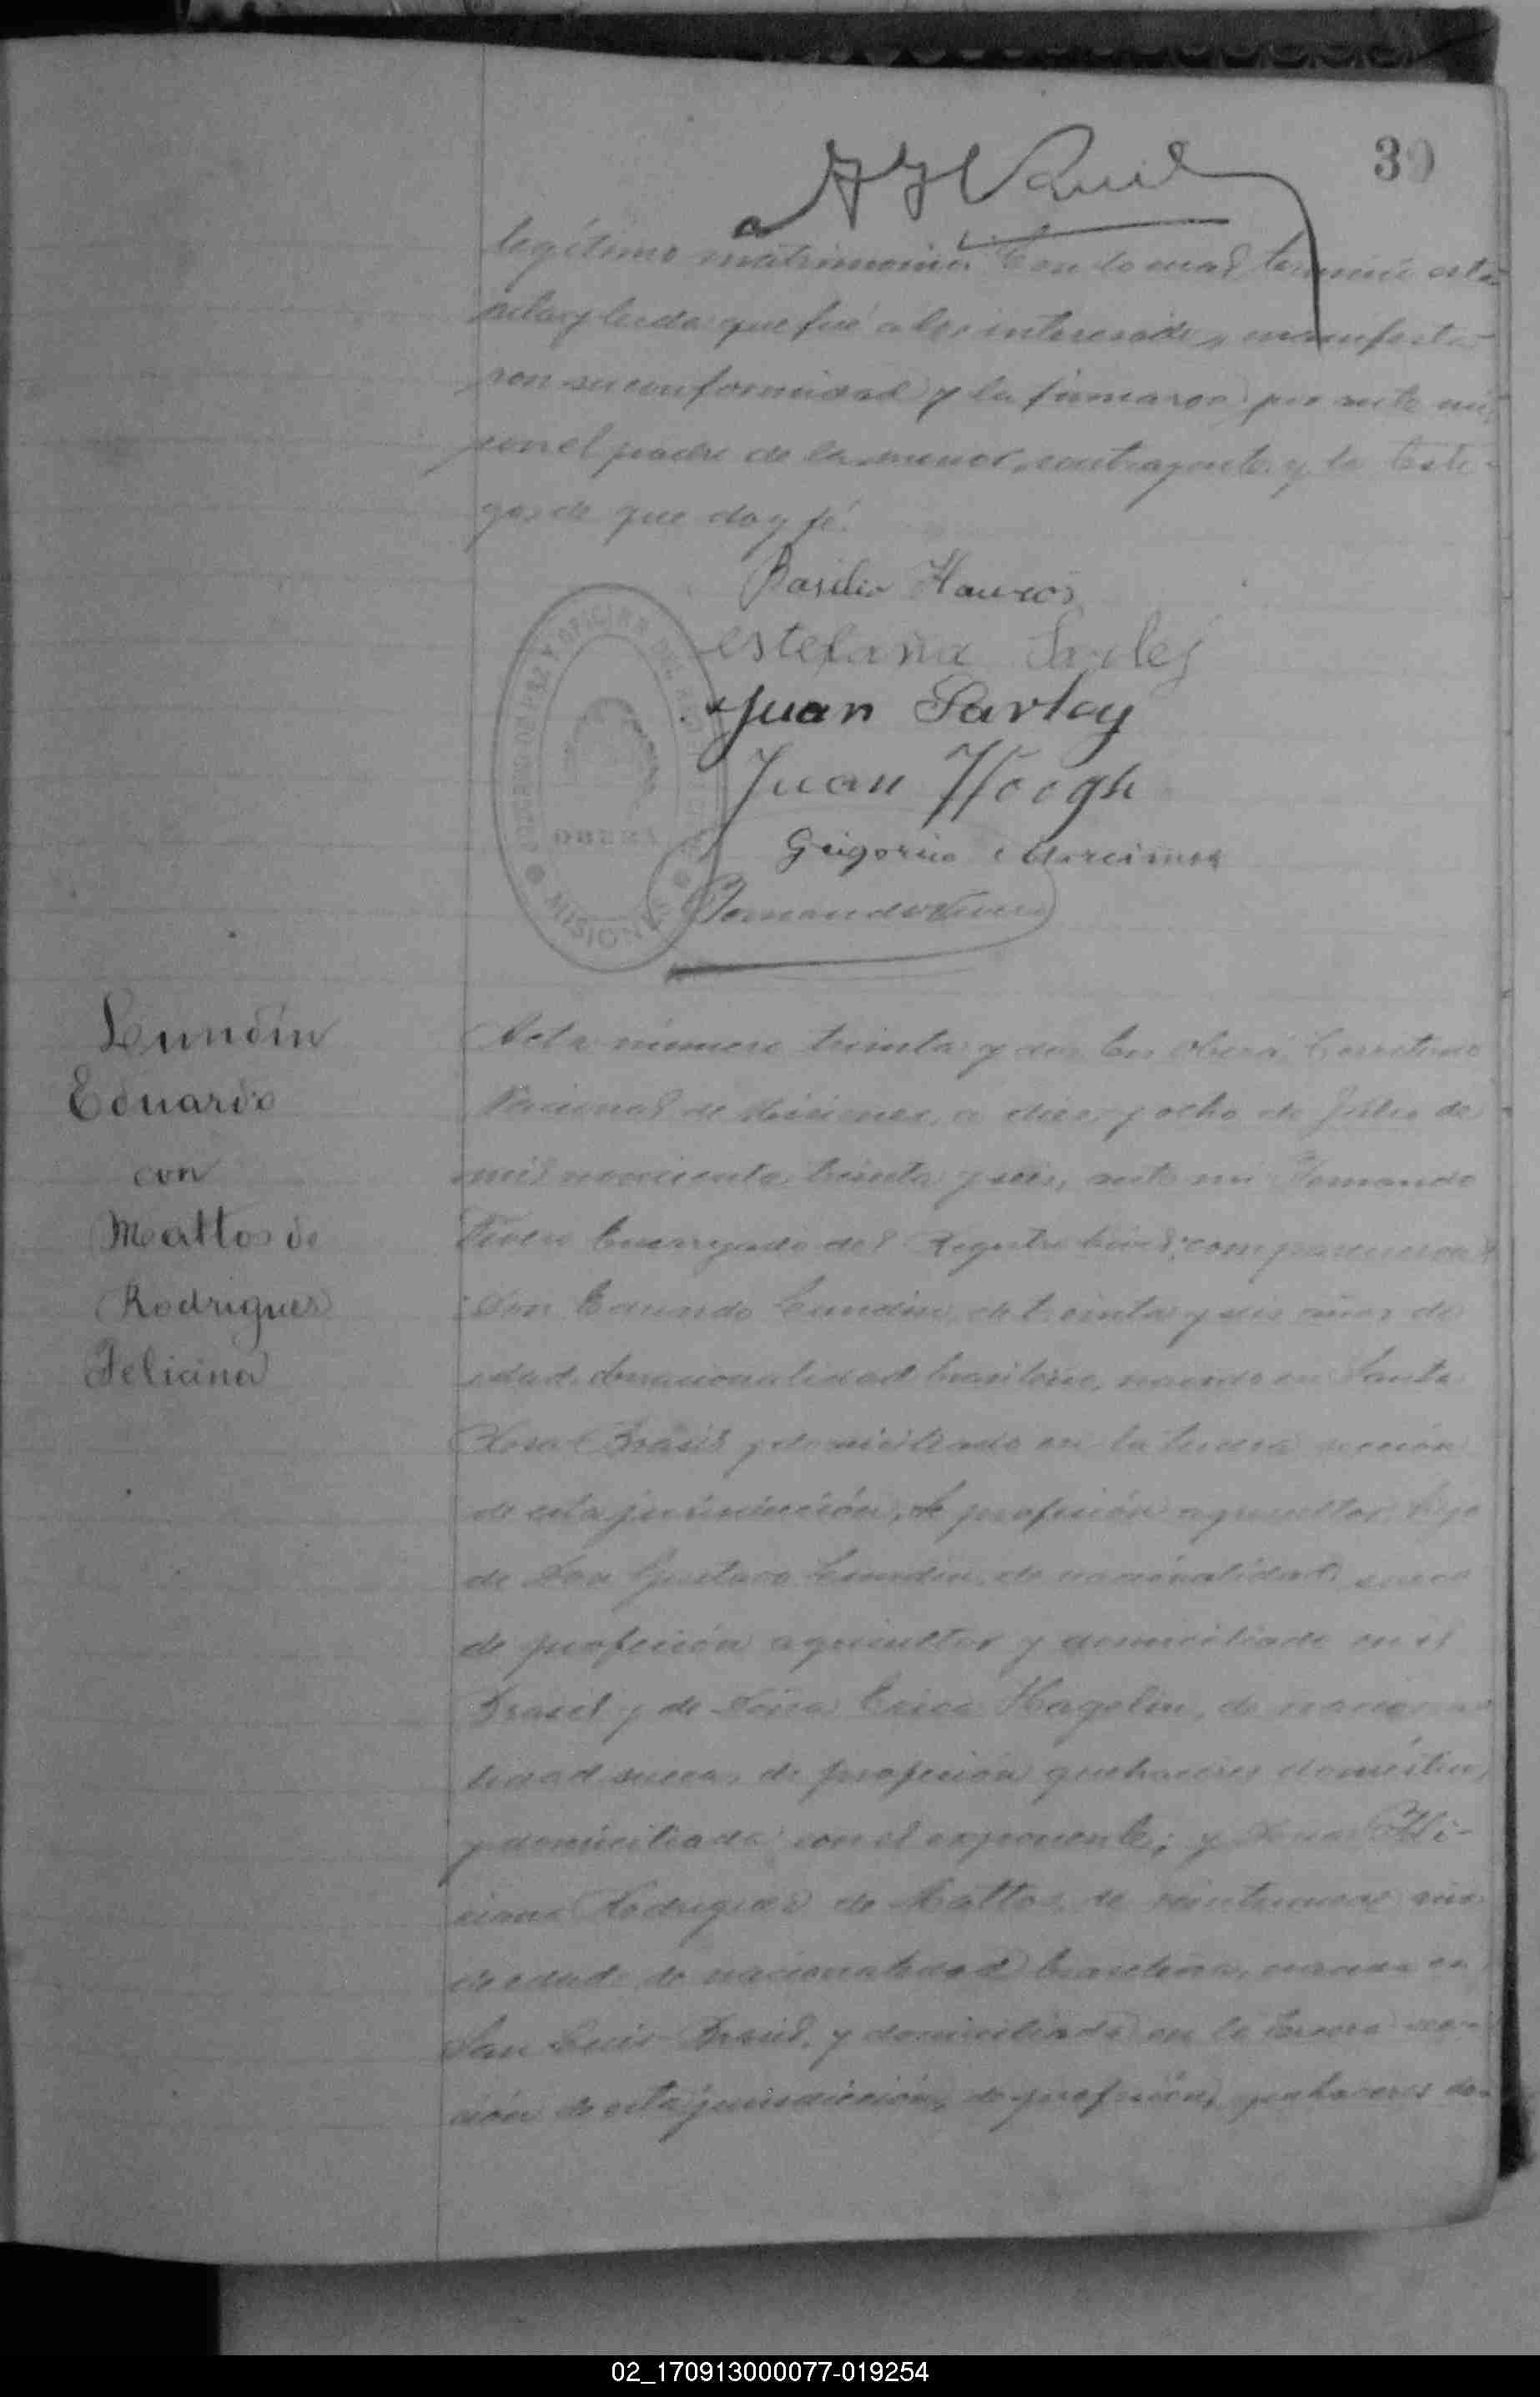 30
legítimo matrimonio. Con lo cual terminé esta
acta y leida que fué a los interesados, manifesta-
ron su conformidad y la firmaron por ante mí,
con el padre de la menor contrayente y los testi-
gos de que doy fé.
Basilio
Estefania Sarlej
Juan Sarlay
Juan Hoogh
JUZGADO DE PAZ Y OFICINA DEL REGISTRO CIVIL
OBERÁ
MISIONES
Lundin
Eduardo
con
Mattos de
Rodriguez
Feliciana
Acta número treinta y dos. En Oberá, Territorio
Nacional de Misiones, a diez y ocho de Julio de
mil novecientos treinta y seis, ante mi Fernando
Encargado del Registro Civil, comparecieron
Don Eduardo Lundin, de treinta y seis años de
edad, de nacionalidad brasilera, nacido en Santa
Rosa-Brasil y domiciliado en la tercera sección
de esta jurisdicción, de profesión agricultor, hijo
de Don Gustavo Lundin, de nacionalidad sueca
de profesión agricultor y domiciliado en el
Brasil y de Doña Erica Hagelin, de naciona-
lidad sueca, de profesión quehaceres domésticos
y domiciliada con el exponente; y Doña Feli-
ciana Rodriguez de Mattos, de veintinueve años
de edad, de nacionalidad brasilera, nacida en
San Luis-Brasil, y domiciliada en la tercera sec-
ción de esta jurisdicción, de profesión, quehaceres do-
02_170913000077-019254